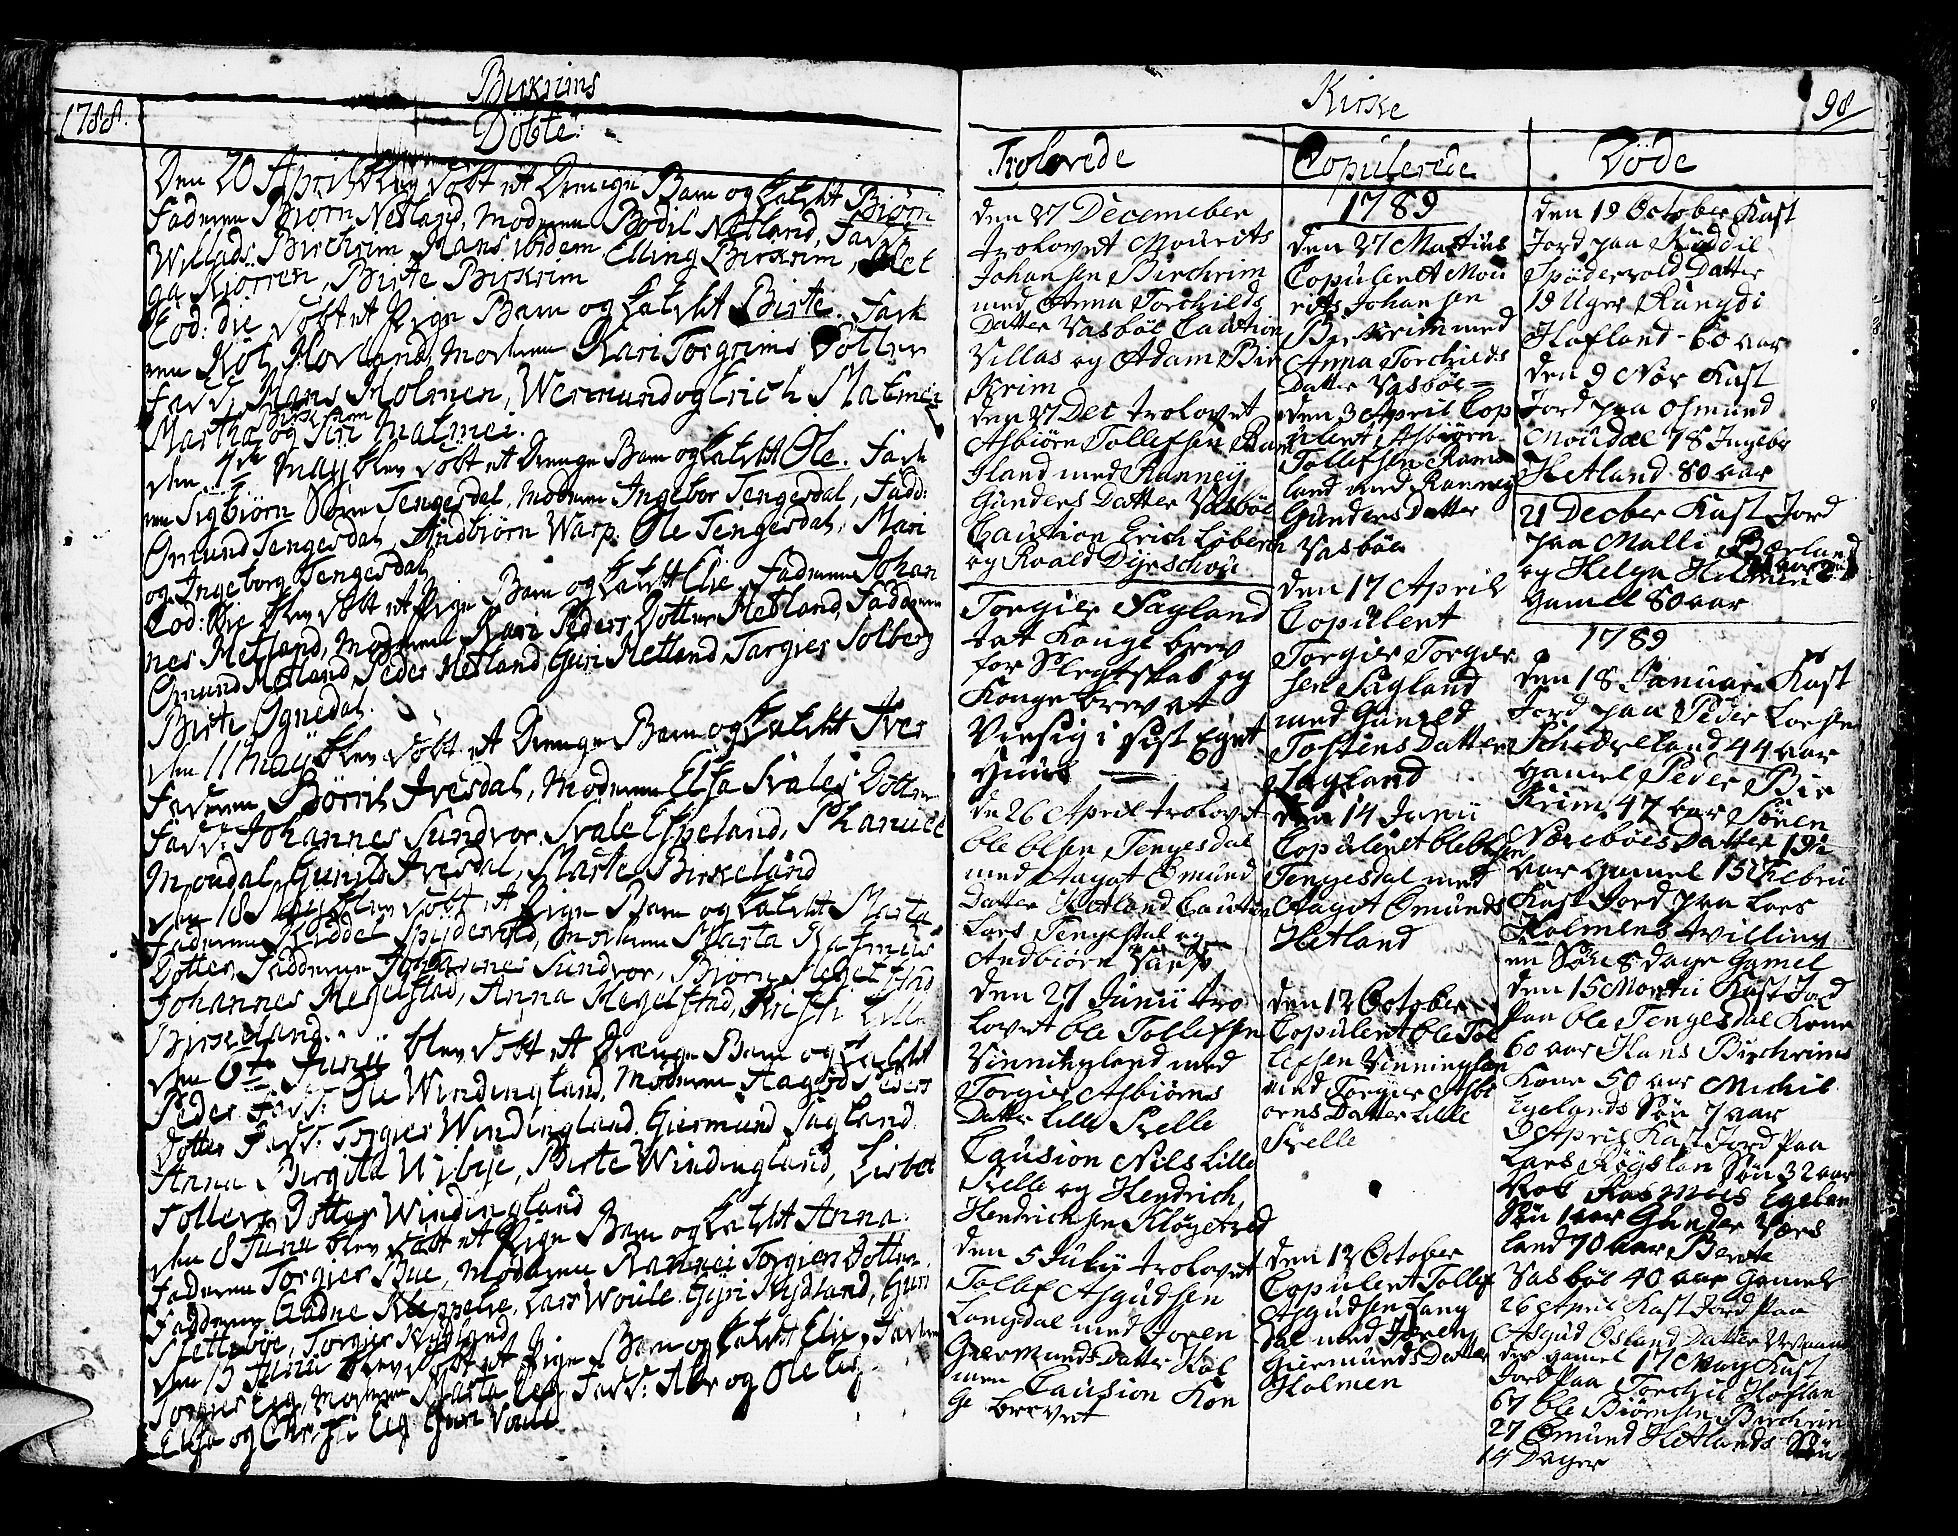 Birkrims
1788.
Döbte
Den 20 April blev döbt et Drenge Barn og kaldt Biørn
Faderen Biørn Netland, Moderen Bodil Netland, Fadd
Willads Birchrim, Hans ibidem Elling Birkrim,
ga Kiörren, Birte Birkrim
Eod: die döbt et Pige Barn og kaldt Birte. Fad
ren Hovland, Moderen Kari Torgrims Dotter
Fadd: Hans Holmen, Wermund og Erich Malmei
Birkrim
Martha og Siri Malmei.
den 1te May blev döbt et Drenge Barn og kaldt Ole. Fad
ren Sigbiörn Tengesdal, Moderen Ingebor Tengesdal, Fadd:
Omund Tengesdal, Andbiörn Warp. Ole Tengesdal, Mari
og Ingeborg Tengesdal
Eod: Die blev döbt et Pige Barn og kaldt Elie, Faderen Johan
nes Hetland, Moderen Kari Peders Dotter Hetland, Fadderne
Omund Hetland, Peder Hetland, Guri Hetland, Targier Solberg
Birte Ognedal.
den 11 May blev döbt et Drenge Barn og kaldt Iver
Faderen Börrild Ivesdal, Moderen Elsa Svales Dotter
Fadd: Johannes Sundvor. Svale Espeland, Phanuel
Moudal, Gunild Ivesdal, Marte Birkeland
den 18 May blev döbt et Pige Barn og kaldt Marta
Faderen Kiddel Spödervold, Moderen Marta Rasmus
Dotter, Fadderne Johannes Sundvor, Biörn Hegelstad
Johannes Hegelstad, Anna Hegelstad, Kristi Lille
Birkeland.
den 6te Junii blev döbt et Drenge Barn og kaldt
Peder Fad: Ole Windingland, Moderen Aagod Peders
Dotter Fadd: Torgier Windingland. Giermund Sagland
Anna Birgita Wibye, Birte Windingland, Lisbet
Tollevs Dotter Windingland
den 8 Junii blev döbt et Pige Barn og kaldt Anna.
Faderen Torgier Bue, Moderen Rannei Torgiers Dotter,
Fadderne Gudne Kleppelie, Lars Woule. Guri Rysland, Guri
Slettebøe, Torgier Rysland
den 15 Junii blev döbt et Pige Barn og kaldt Elie, Faderen
Torgier Eeg, Moderen Marta Eeg Fadd: Abr og Ole Eeg
Elsa og Christi Eeg Guri Voule
Kirke
98
Trolovede
den 27 December
trolovet Mourits
Johansen Birchrim
med Anna Torchilds
Datter Vasböe Caution
Villas og Adam Bir
krim
den 27 Dec trolovet
Asbiörn Tollefsen Ram
sland med Ranney
Gunders Datter Vasböe
Caution Erich Löbera
og Roald Dyrschou
Torgier Sagland
tat Konge brev
for Slegtskab og
Konge brev at
Viesig i sist Eget
Huus
den 26 April trolovet
Ole Olsen Tengesdal
med Aagot Omund
Datter Hetland Caution
Lars Tengesdal og
Andbiörn Varp
Den 27 Junii tro
lovet Ole Tollefsen
Vinningland med
Torgier Asbiörns
Datter Lille Svelle
Causion Nils Lille
Svelle og Hendrich
Hendrichsen Klögetved
den 5 July trolovet
Tollef Asgudsen
Langdal med Joren
Giermunds Datter Hol
men Causion Kon
ge brevet
Copulerede
1789
den 27 Martius
Copuleret Mou
rits Johansen
Berkrim med
Anna Torchilds
Datter Vasböe
den 3 April Cop
uleret Asbiörn
Tollefsen Rams
land med Ranney
Gunders Datter
Vasböe
den 17 April
Copuleret
Torgier Torgier
sen Sagland
med Guneld
Tostens Datter
Sagland
den 14 Junii
Copuleret Ole Olsen
Tengesdal med
Aagot Omunds
Hetland
den 12 October
Copuleret Ole Tol
lefsen Vinninglan
med Torgier Asbi
orns Datter Lille
Svelle
den 12 October
Copuleret Tollef
Asgudsen Lang
dal med Joren
Giermunds Datter
Holmen
Döde
den 19 October Kast
Jord paa Kiddil
Spödervold Datter
19 Uger Rungdi
Hofland - 60 aar
den 9 Nov Kast
Jord paa Osmund
Moudal 78 Ingebr
Hetland 80 aar
21 Decber Kast Jord
paa Malli Bærland
og Helga Holmen
gamel 80 aar
1789
den 18 Januari Kast
Jord paa Peder Larsen
Schævreland 44 aar
gamel Peder Bir
krim 47 aar Sören
Noreböes Datter 1½
aar gamel 15 Febru
Kast Jord paa Lars
Holmens tvilling
en Søn 8 dage gamel
den 15 Martii Kast Jord
Paa Ole Tengesdal Kone
60 aar Hans Birchrims
Kone 50 aar Michil
Egelands Søn 7 aar
3 April Kast Jord Paa
Lars Röyslan Søn 32 aar
Rasmus Egelan
Søn 1 aar Gunder Værs
land 70 aar Berte
Vasböe 40 aar gamel
26 April Kast Jord Paa
Asgud Osland Datter
der gamel 17 May Kast
Jord Paa Torchil Hoflan
67 Ole Biörnsen Birchrim
27 Omund Hetlands Søn
14 Dager